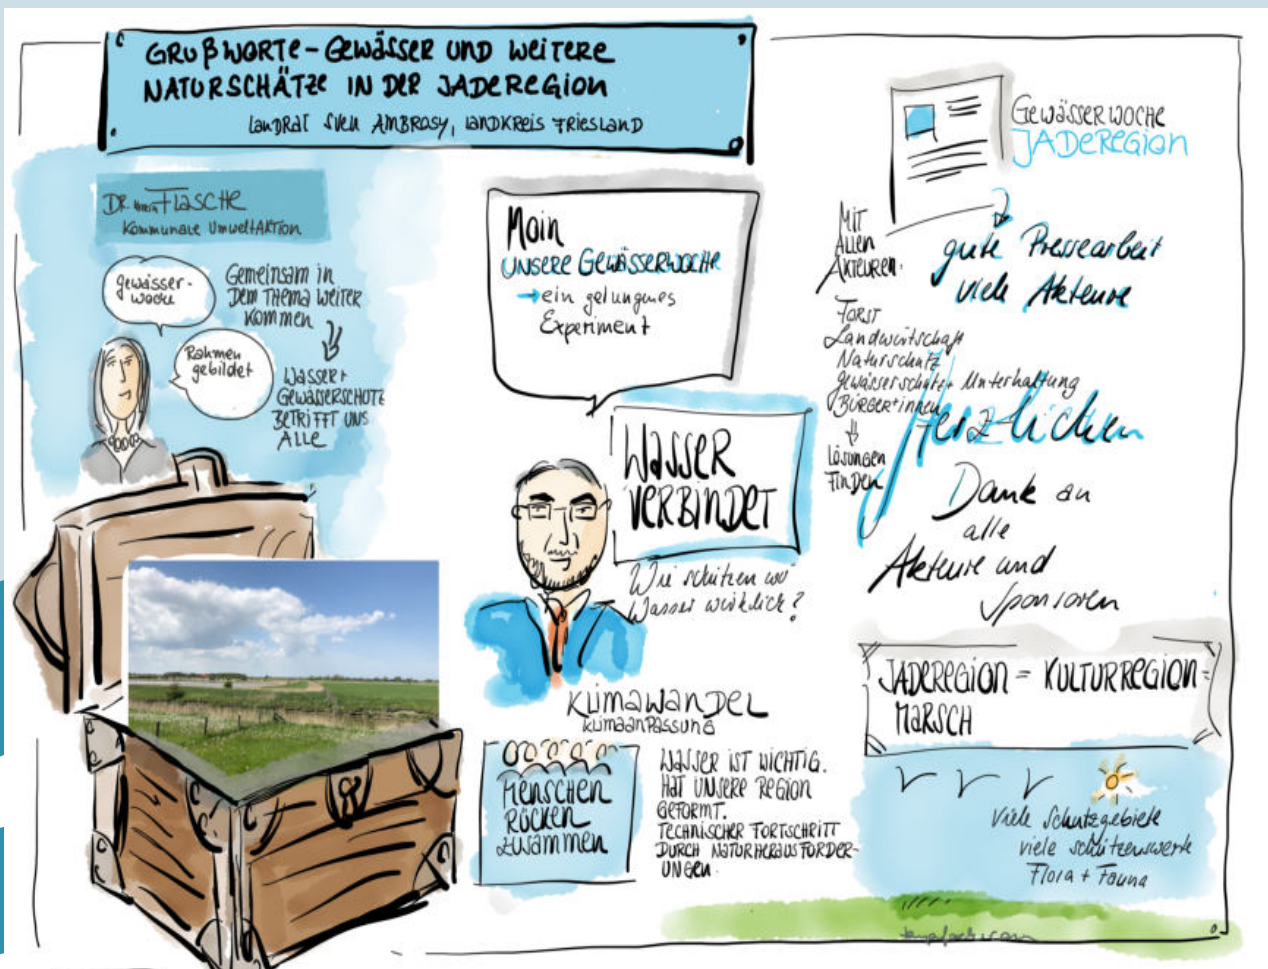 GRUßWORTE - GEWÄSSER UND WEITERE
NATURSCHÄTZE IN DER JADEREGION
LANDRAT SVEN AMBROSY, LANDKREIS FRIESLAND
DR. FLASCHE
KOMMUNALE UMWELTAKTION
Gewässer-
woche
GEMEINSAM IN
DEM THEMA WEITER
KOMMEN
Rahmen
gebildet
WASSER+
GEWÄSSERSCHUTZ
BETRIFFT UNS
ALLE
Moin
UNSERE GEWÄSSERWOCHE
ein gelungnes
Experiment
WASSER
VERBINDET
Wie schützen wir
Wasser wirklich?
KLIMAWANDEL
KLIMAANPASSUNG
MENSCHEN
RÜCKEN
ZUSAMMEN
WASSER IST WICHTIG.
HAT UNSERE REGION
GEFORMT.
TECHNISCHER FORTSCHRITT
DURCH NATURHERAUSFORDER-
UNGEN.
GEWÄSSERWOCHE
JADEREGION
gute Pressearbeit
viele Akteure
MIT
ALLEN
AKTEUREN.
FORST
Landwirtschaft
Naturschutz
Gewässerschutz + Unterhaltung
BÜRGER+INNEN
LÖSUNGEN
FINDEN
Herzlichen
Dank an
alle
Akteure und
Sponsoren
JADEREGION = KULTURREGION =
MARSCH
Viele Schutzgebiete
viele schützenswerte
Flora + Fauna